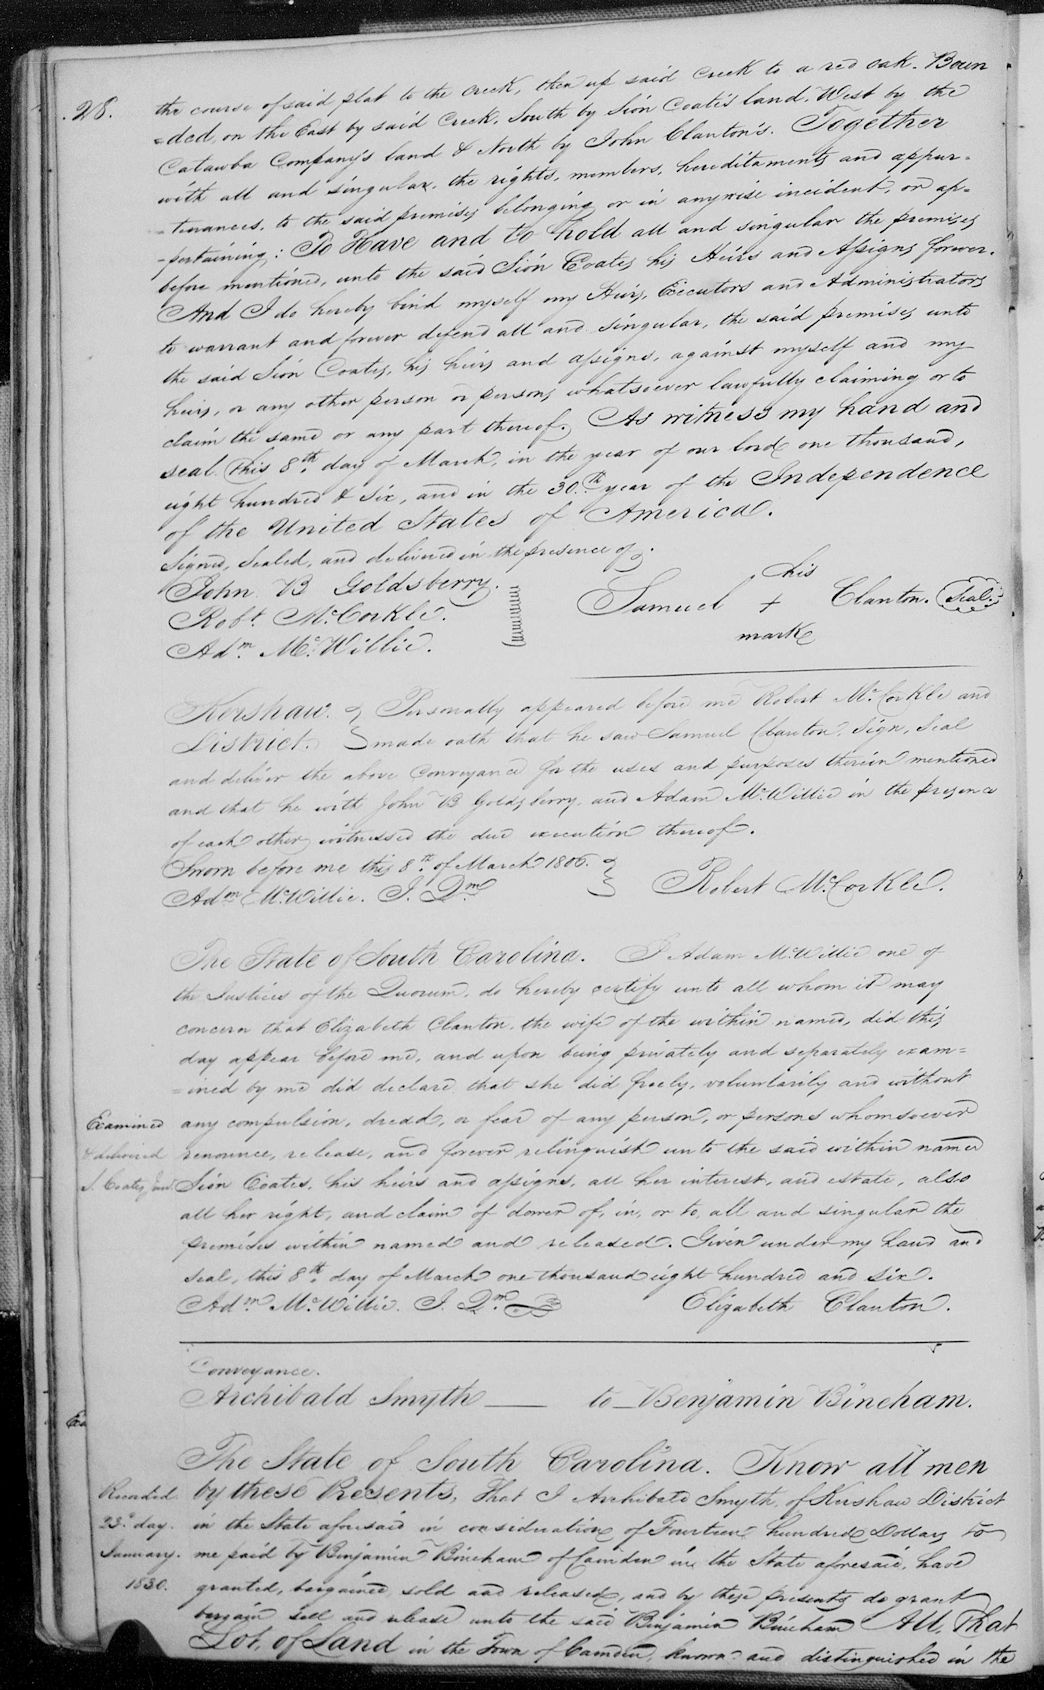 28.
the course of said plat to the creek, then up said Creek to a red oak. Boun
=ded, on the East by said Creek, South by Sión Coate's land. West by the
Catawba Company's land & North by John Clanton's. Together
with all and singular, the rights, members, hereditaments and appur-
-tenances, to the said premises belonging or in anywise incident, or ap=
-pertaining: To Have and to hold all and singular the premises
before mentioned, unto the said Sión Coates his Heirs and Assigns forever.
And I do hereby bind myself my Heirs, Executors and Administrators
to warrant and forever defend all and singular, the said premises unto
the said Sión Coates, his heirs and assigns, against myself and my
heirs, or any other person or persons whatsoever lawfully claiming or to
claim the same or any part thereof. As witness my hand and
seal this 8th day of March, in the year of our lord one thousand,
eight hundred & Six, and in the 30th year of the Independence
of the United States of America.
Signed, Sealed, and delivered in the presence of
John B Goldsberry.
Robt. McCorkle.
Adm. McWillie.
his
Samuel + Clanton. Seal.
mark
Kershaw District. Personally appeared before me Robert McCorkle and
made oath that he saw Samuel Clanton, Sign, Seal
and deliver the above Conveyance for the uses and purposes therein mentioned
and that he with John B Goldsberry, and Adam McWillie in the presence
of each other, witnessed the due execution thereof.
Sworn before me this 8th of March 1806.
Adm McWillie. J. Qm
Robert McCorkle.
The State of South Carolina. I Adam McWillie one of
the Justices of the Quorum, do hereby certify unto all whom it may
concern that Elizabeth Clanton, the wife of the within named, did this
day appear before me, and upon being privately and separately exam=
=ined by me did declare that she did freely, voluntarily and without
any compulsion, dread, or fear of any person, or persons whomsoever
renounce, release, and forever relinquish unto the said within named
Sión Coates, his heirs and assigns, all her interest, and estate, also
all her right, and claim of dower of, in, or to, all and singular the
premises within named and released. Given under my hand and
Seal, this 8th day of March one thousand eight hundred and six.
Examined
& delivered
S. Coates
Adm McWillie. J. Qm
Elizabeth Clanton.
Conveyance.
Archibald Smyth — to — Benjamin Bineham.
The State of South Carolina. Know all men
by these Presents, That I Archibald Smyth, of Kershaw District
in the State aforesaid in consideration of Fourteen hundred Dollars to
me paid by Benjamin Bineham of Camden in the State aforesaid, have
granted, bargained, sold and released, and by these presents do grant
bargain sell and release unto the said Benjamin Bineham All, That
Lot, of Land in the Town of Camden, known and distinguished in the
Recorded
23d day.
January.
1830.